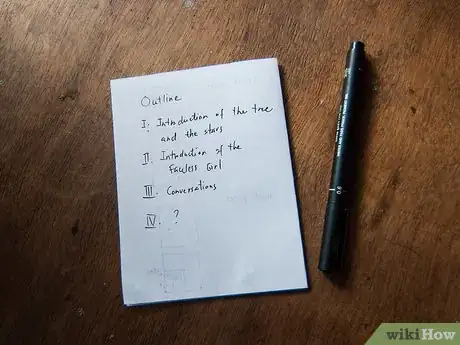 Outline
I. Introduction of the tree
and the stars
II. Introduction of the
Faceless Girl
III. Conversations
IV. ?
0.9
wikiHow